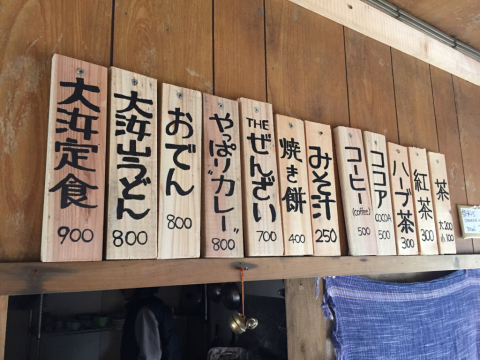 大汢定食
900
大汢山うどん
800
おでん
800
やっぱり"カレー"
800
THE ぜんざい
700
焼き餅
400
みそ汁
250
コーヒー
(coffee)
500
ココア
COCOA
500
ハーブ茶
300
紅茶
300
茶
大200
小100